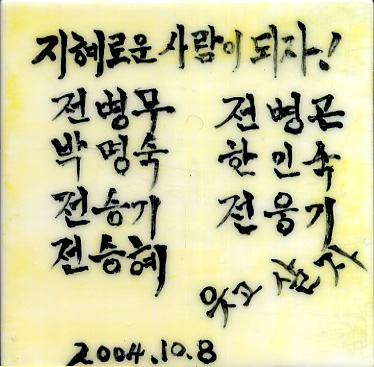 지혜로운 사람이 되자!
전병무 전병곤
박명숙 한인숙
전승기 전웅기
전승혜
2004.10.8